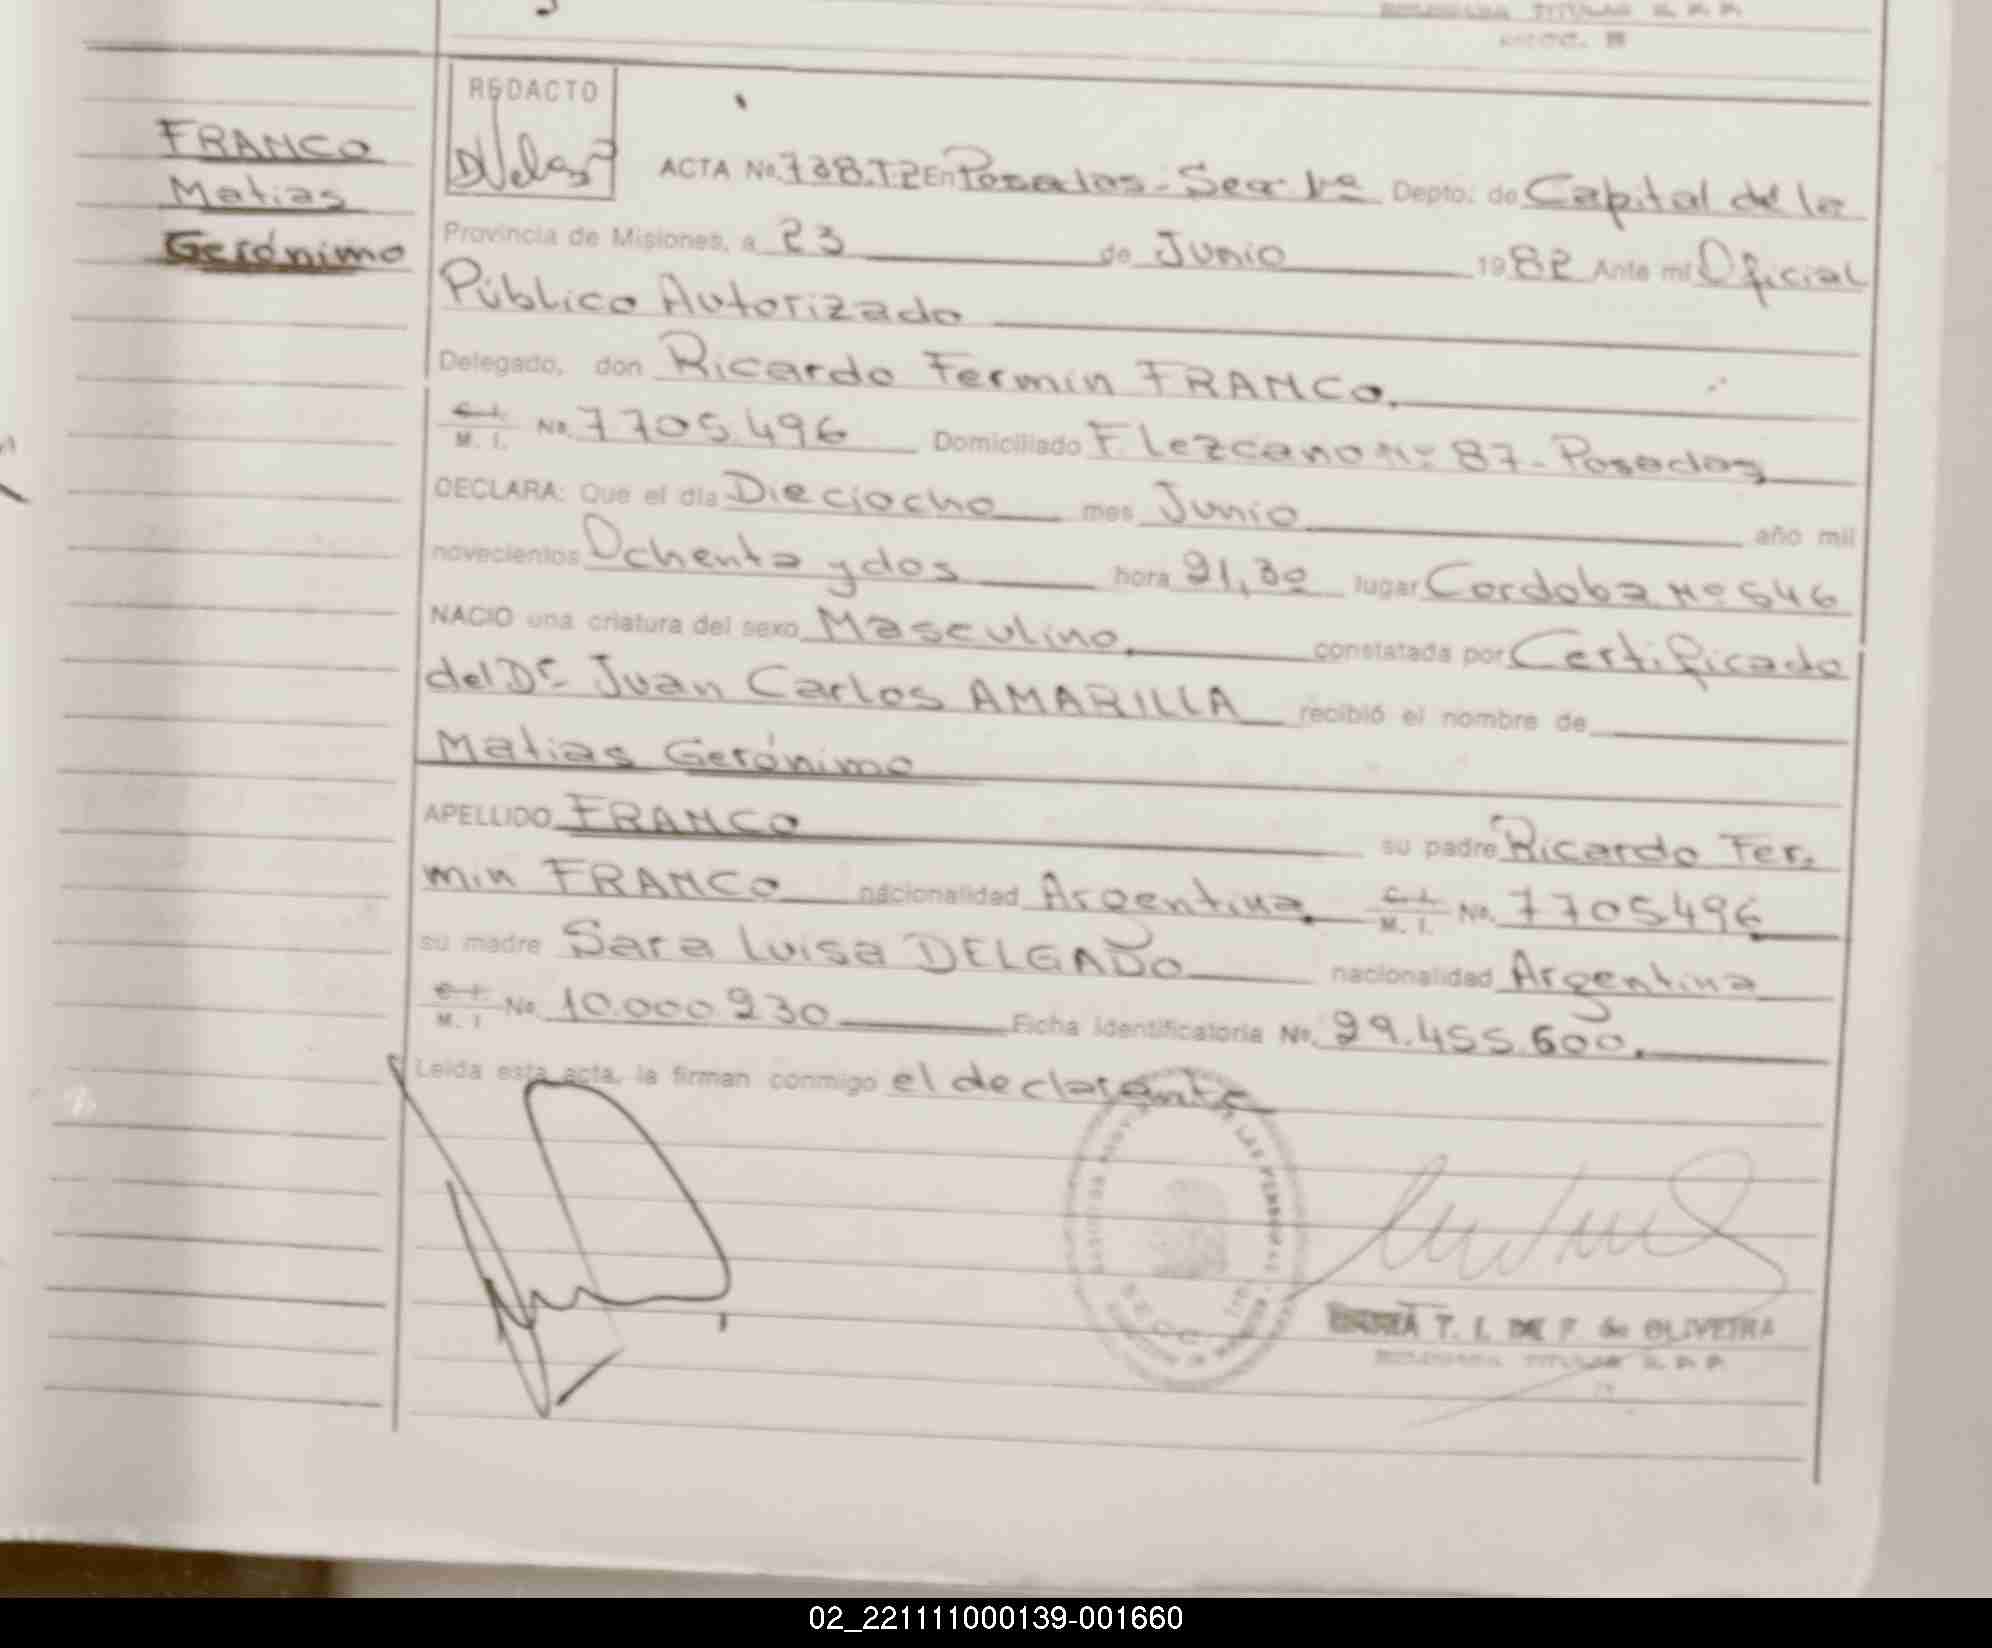 FRANCO
Matias
Gerónimo
REDACTO
ACTA No. 738.T2 En Posadas - Secc 1ª Depto: de Capital de la
Provincia de Misiones, a 23 de Junio 1982 Ante mi Oficial
Público Autorizado
Delegado, don Ricardo Fermin FRANCO.
C. I.
M. I. No. 7705.496 Domiciliado F. Lezcano Nº 87 - Posadas
DECLARA: Que el día Dieciocho mes Junio año mil
novecientos Ochenta y dos hora 21,30 lugar Cordoba Nº 546
NACIO una criatura del sexo Masculino, constatada por Certificado
del Dr. Juan Carlos AMARILLA recibió el nombre de
Matias Gerónimo
APELLIDO FRANCO su padre Ricardo Fer-
min FRANCO nacionalidad Argentina. C. I.
M. I. No. 7705496
su madre Sara Luisa DELGADO nacionalidad Argentina
C. I.
M. I. No. 10.000.230 Ficha Identificatoria No. 29.455.600.
Leída esta acta, la firman conmigo el declarante
T. I. DE F. de OLIVEIRA
TITULAR R. P. P.
02_221111000139-001660